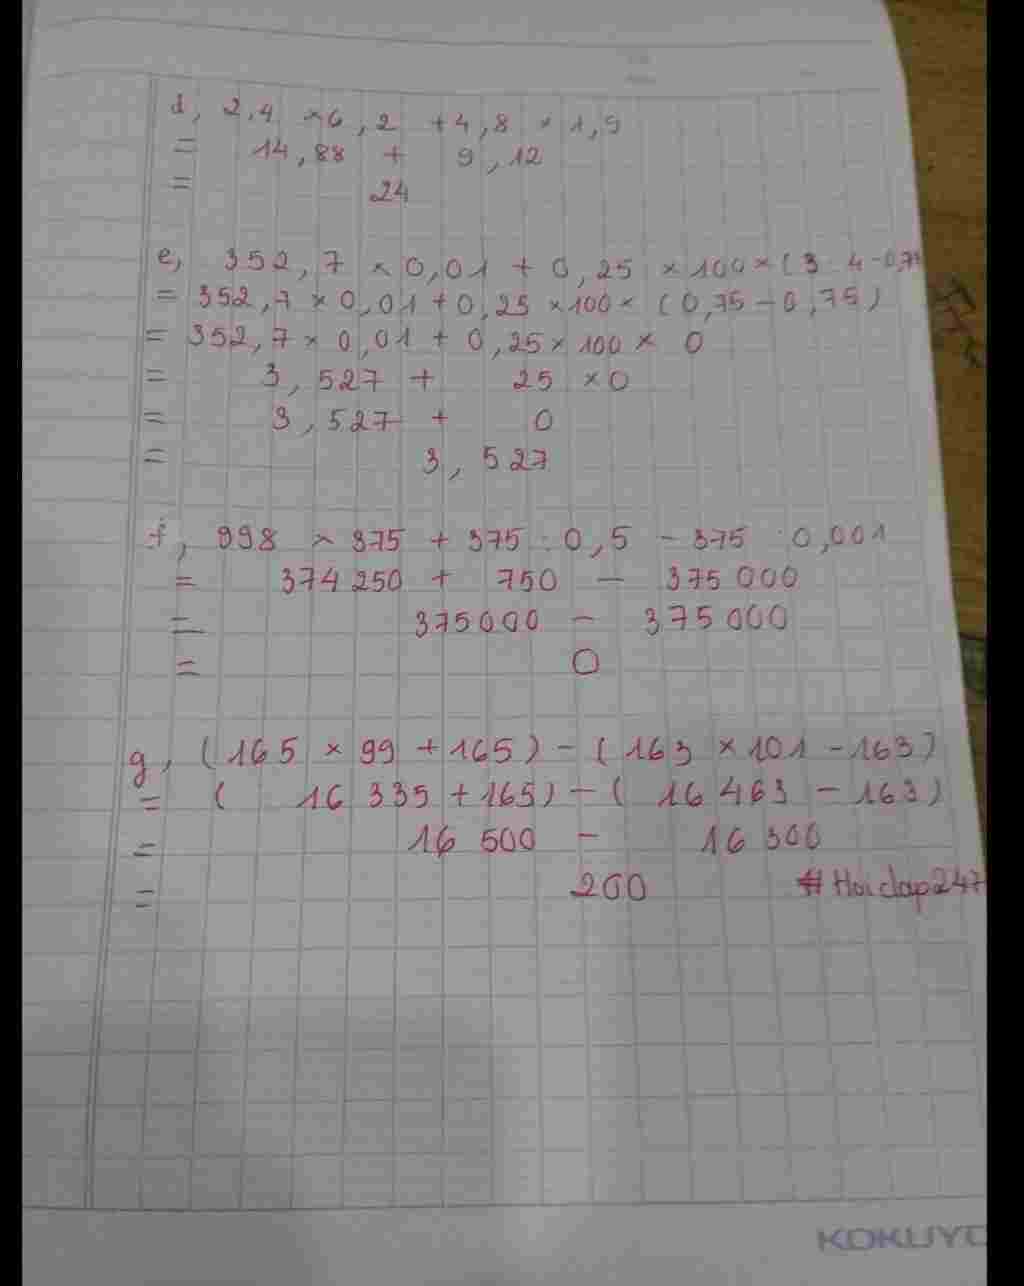 d, 2,4 × 6,2 + 4,8 × 1,9
= 14,88 + 9,12
= 24
e, 352,7 × 0,01 + 0,25 × 100 × (3 : 4 - 0,75
= 352,7 × 0,01 + 0,25 × 100 × (0,75 - 0,75)
= 352,7 × 0,01 + 0,25 × 100 × 0
= 3,527 + 25 × 0
= 3,527 + 0
= 3,527
f, 998 × 375 + 375 : 0,5 - 375 : 0,001
= 374 250 + 750 - 375 000
= 375000 - 375 000
= 0
g, (165 × 99 + 165) - (163 × 101 - 163)
= (16 335 + 165) - (16 463 - 163)
= 16 500 - 16 300
= 200 # Hoidap247
KOKUYO